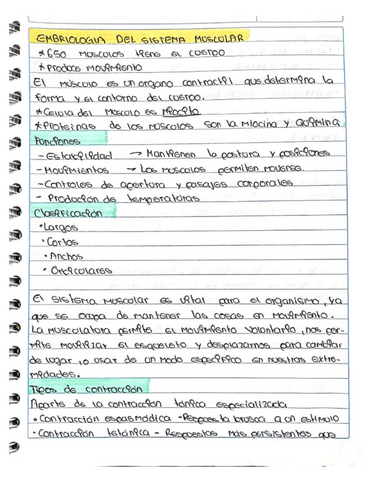 EMBRIOLOGIA DEL SISTEMA MUSCULAR
*650 MUSCULOS tiene EL CUERPO
*Produce MOVIMIENTO
El MÚSCULO es un organo contractil que determina la
forma y el contorno del cuerpo.
*Celula del Musculo es Miocito
*Proteinas de los MUSCULOS son la Miocina y Quimina
Funciones
-Estabilidad → Mantienen la postura y posiciones
-Movimientos → Los MUSCULOS permiten moverse.
-Controles de apertura y pasajes corporales
- Producion de temperaturas
Clasificación
•Largos
•Cortos
•Anchos
•Orbiculares
El sistema muscular es vital para el organismo, ya
que se ocupa de mantener las cosas en movimiento.
La musculatura permite el movimiento voluntario, nos per-
mite movilizar el esqueleto y desplazarnos para cambiar
de lugar, o usar de un modo especifico en nuestras extre-
midades.
Tipos de contracción
Aparte de la contracción tónica especializada
•Contracción espasmódica -Respuesta brusca a un estimulo
•Contracción tetánica - Respuestas más persistentes que